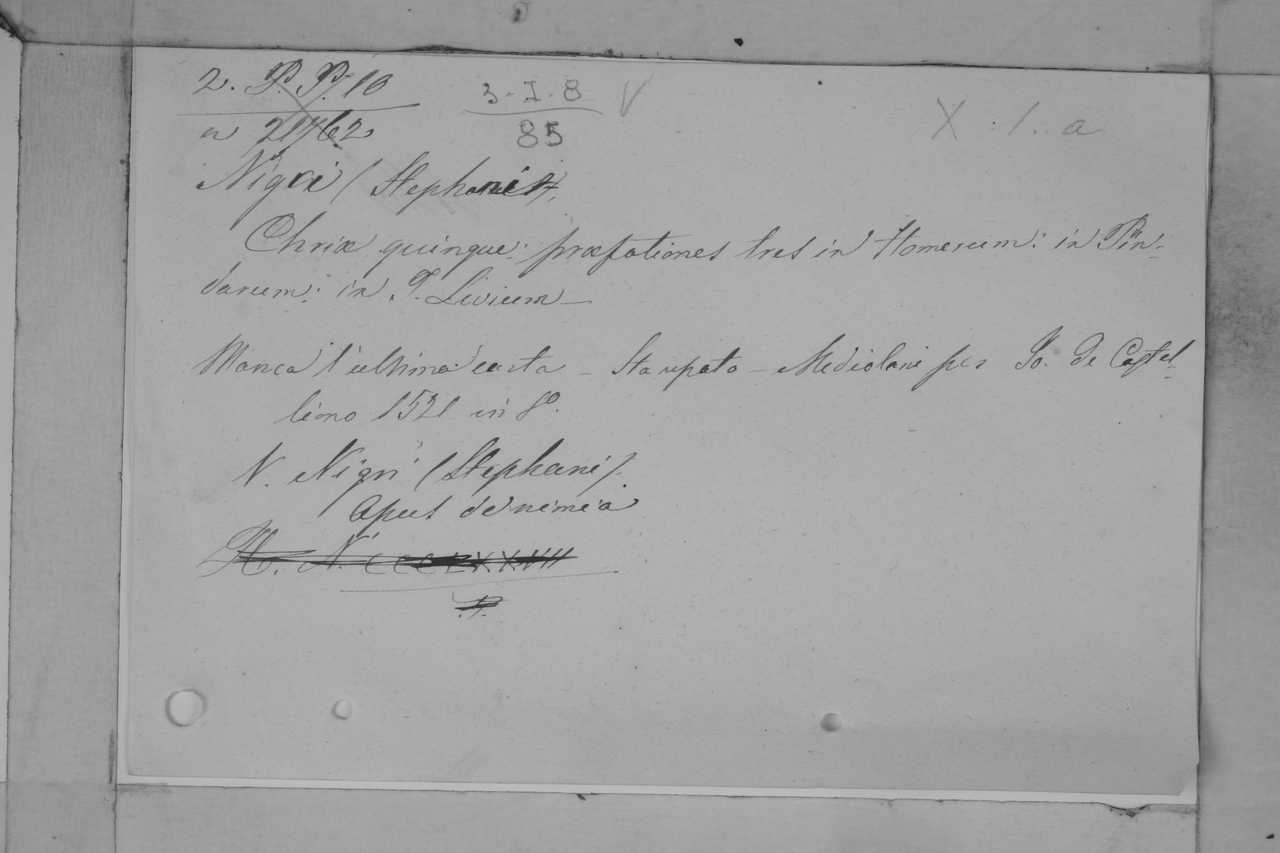 2. P. P. 10
3-I-8 V
X. 1. a
n 21762
85
Nigri (Stephani).
Chriæ quinque: præfationes tres in Homerum: in Pin-
darum: in T. Livium —
Manca l'ultima carta - Stampato - Mediolani per Io. De Castel-
liono 1521 in 8º.
N. Nigri (Stephani).
H. N. CCCLXXVII
P.